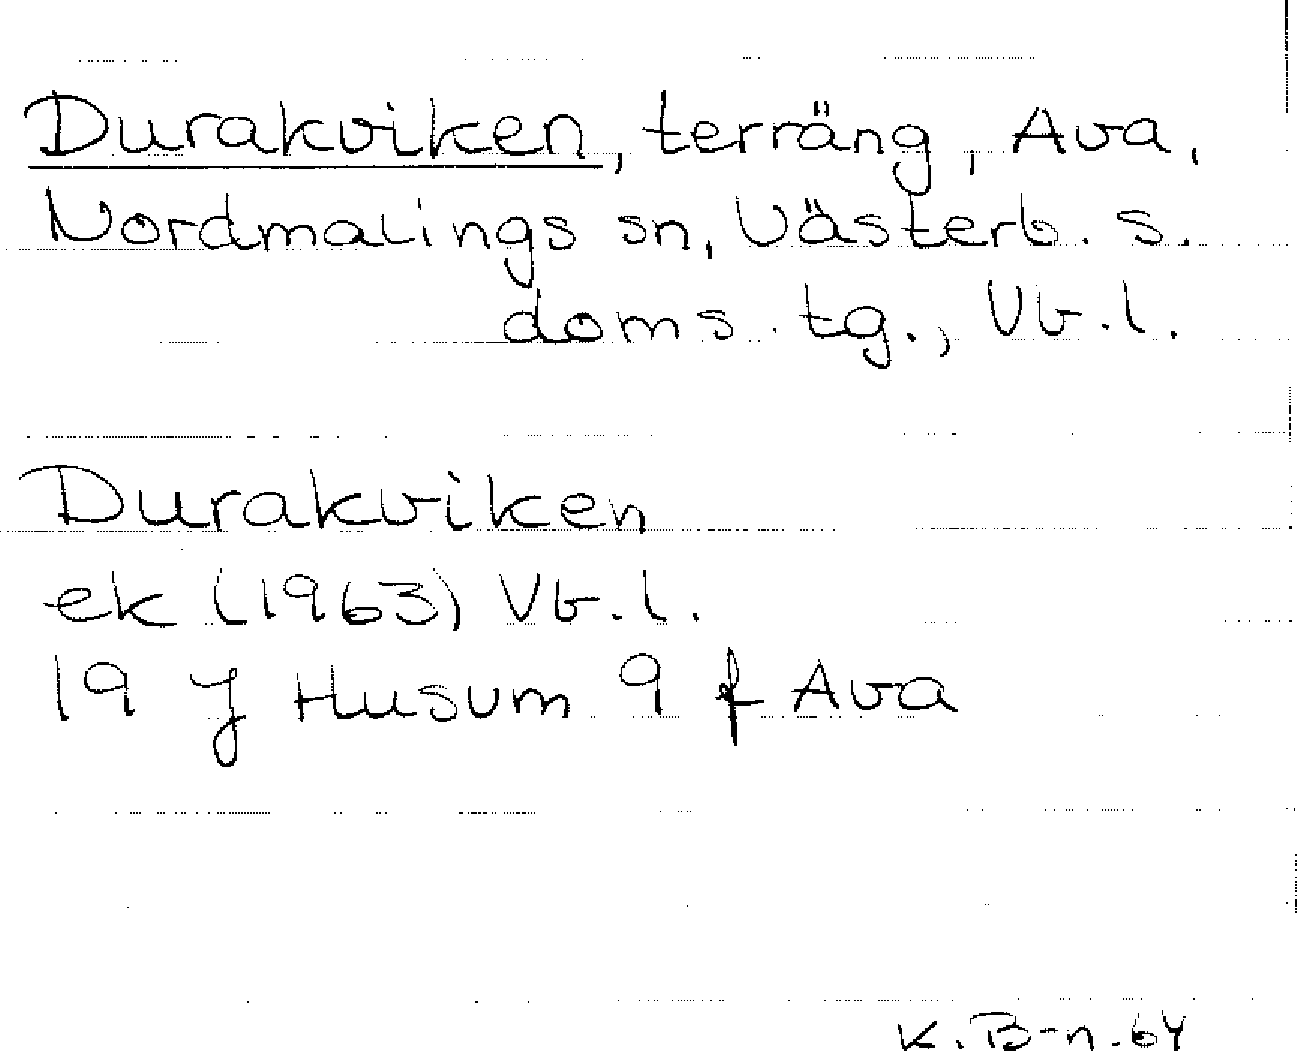 Durakviken, terräng, Ava,
Nordmalings sn, Västerb. s.
doms. tg., Vb.l.
Durakviken
ek (1963) Vb.l.
19 J Husum 9 f Ava
K.B-n.64